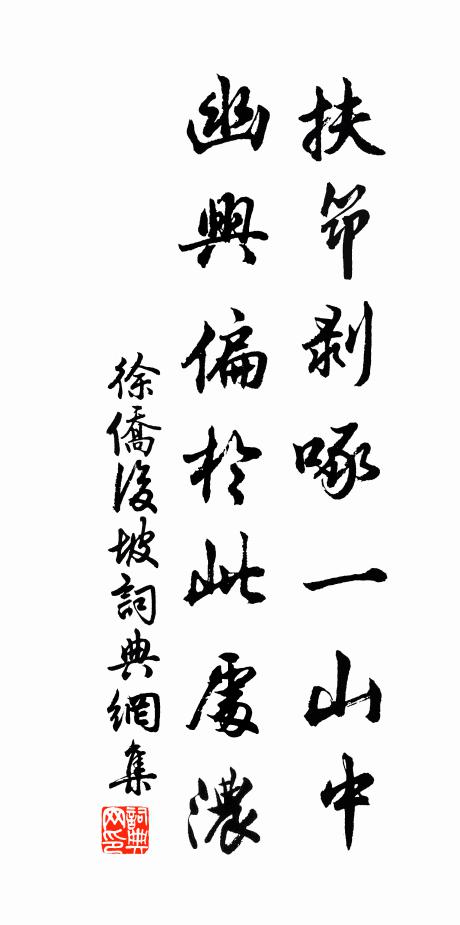 扶筇剝啄一山中
幽興偏於此處濃
徐僑後坡詞典網集
詞典网印